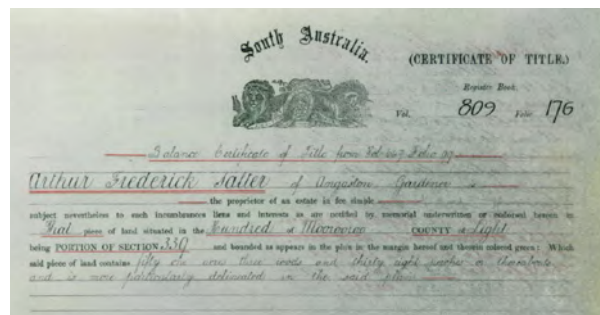 South Australia.
(CERTIFICATE OF TITLE.)
Register Book,
Vol. 809 Folio 176
Balance Certificate of Title from Vol. Folio
Arthur Frederick Salter of Angaston Gardener is
the proprietor of an estate in fee simple
subject nevertheless to such incumbrances liens and interests as are notified by memorial underwritten or endorsed hereon in
That piece of land situated in the Hundred of Moorooroo COUNTY of Light
being PORTION OF SECTION 330 and bounded as appears in the plan in the margin hereof and therein colored green: Which
said piece of land contains fifty one acres three roods and thirty eight perches or thereabouts
and is more particularly delineated in the said plan